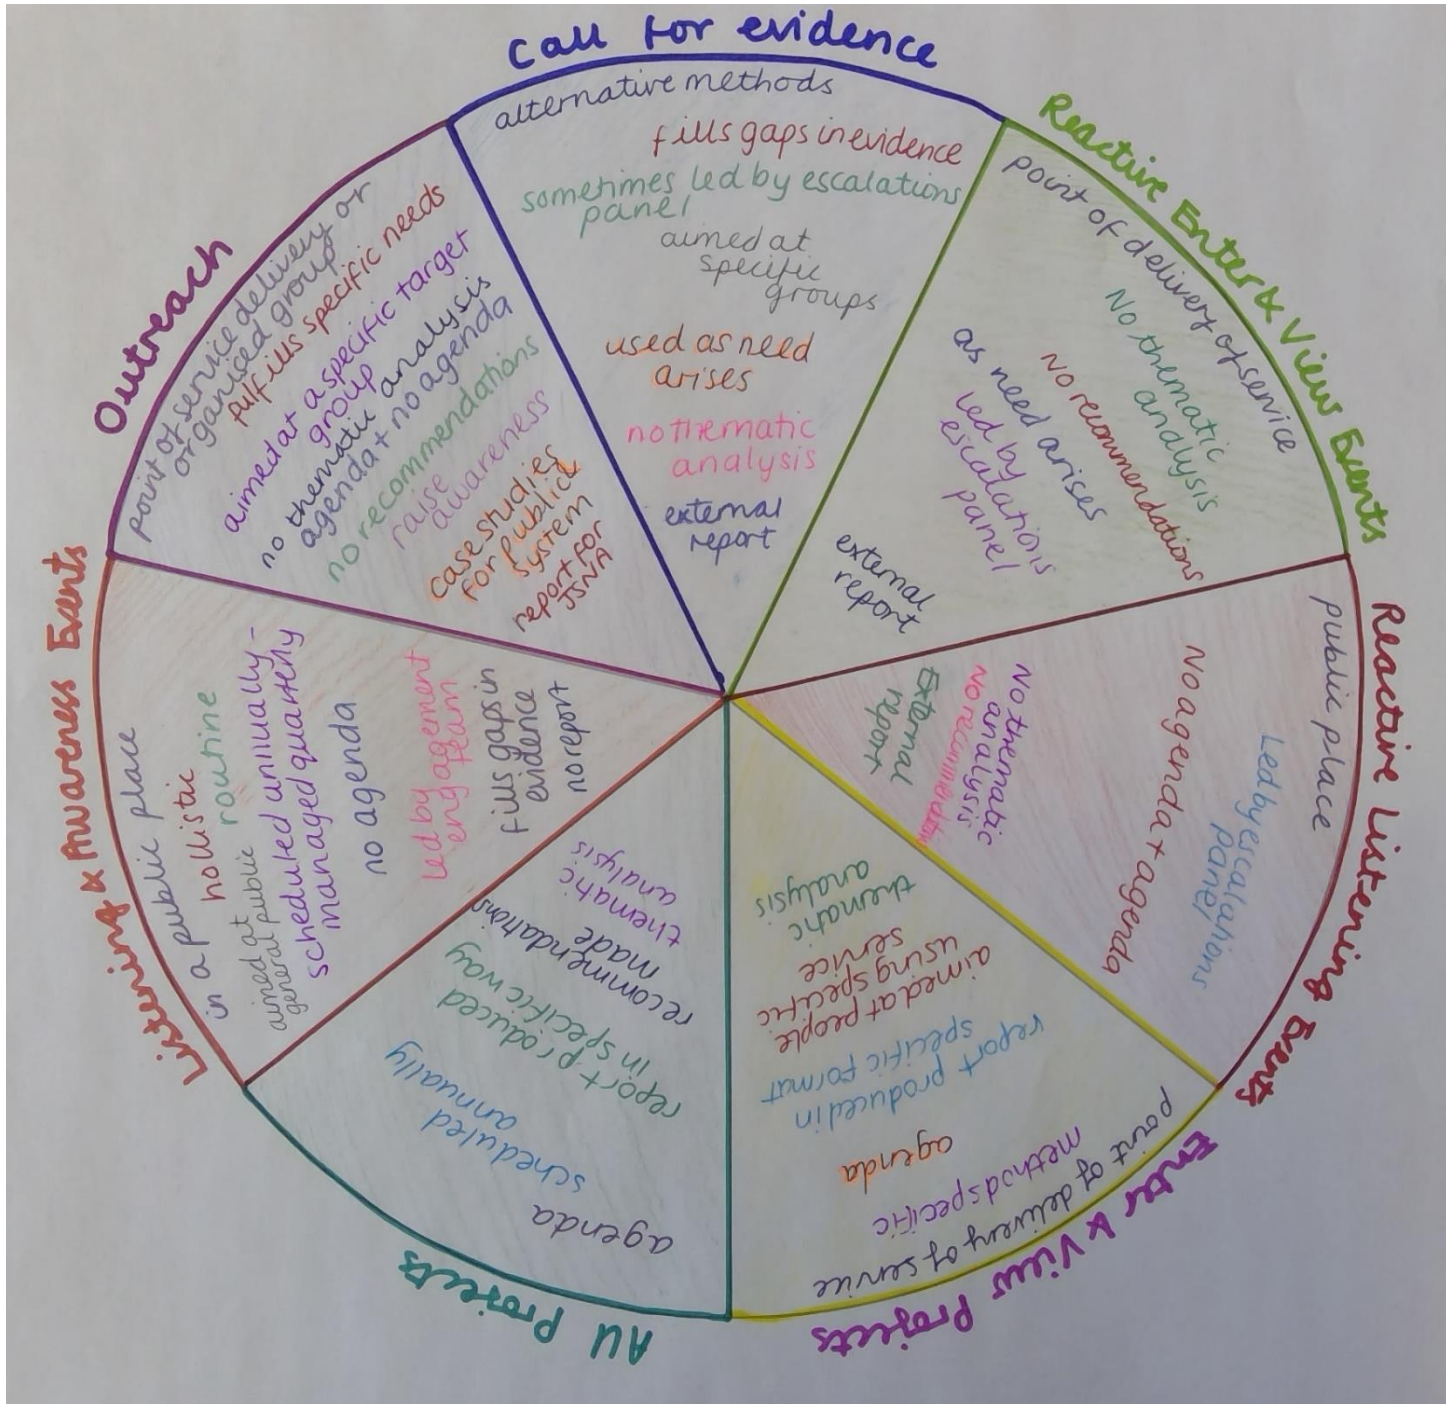 Call for evidence
alternative methods
fills gaps in evidence
sometimes led by escalations
panel
aimed at
specific
groups
used as need
arises
no thematic
analysis
external
report
Reactive Enter & View Events
point of delivery of service
No thematic
analysis
No recommendations
as need arises
led by
escalations
panel
external
report
Reactive Listening Events
public place
Led by escalations
panel
No agenda + agenda
No thematic
analysis
No recommendations
External
report
Enter & View Projects
point of delivery of service
method specific
agenda
report produced in
specific format
aimed at people
using specific
service
thematic
analysis
All Projects
agenda
scheduled
annually
report produced
in specific way
recommendations
made
thematic
analysis
Listening & Awareness Events
in a public place
hollistic
routine
aimed at
general public
scheduled annually -
managed quarterly
no agenda
led by
engagement
team
fills gaps in
evidence
no report
Outreach
point of service delivery or
organised group
fulfills specific needs
aimed at a specific target
group
no thematic analysis
agenda + no agenda
no recommendations
raise
awareness
case studies
for public
system
report for
JSNA